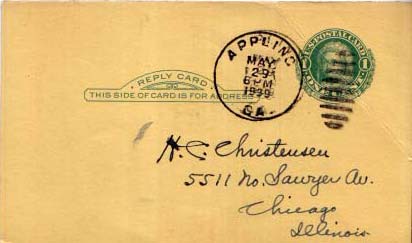 U.S. POSTAL CARD
1 1
REPLY CARD
THIS SIDE OF CARD IS FOR ADDRESS
APPLING
MAY
12
6 PM
1939
GA.
H. C. Christensen
5511 No. Sawyer Av.
Chicago
Illinois